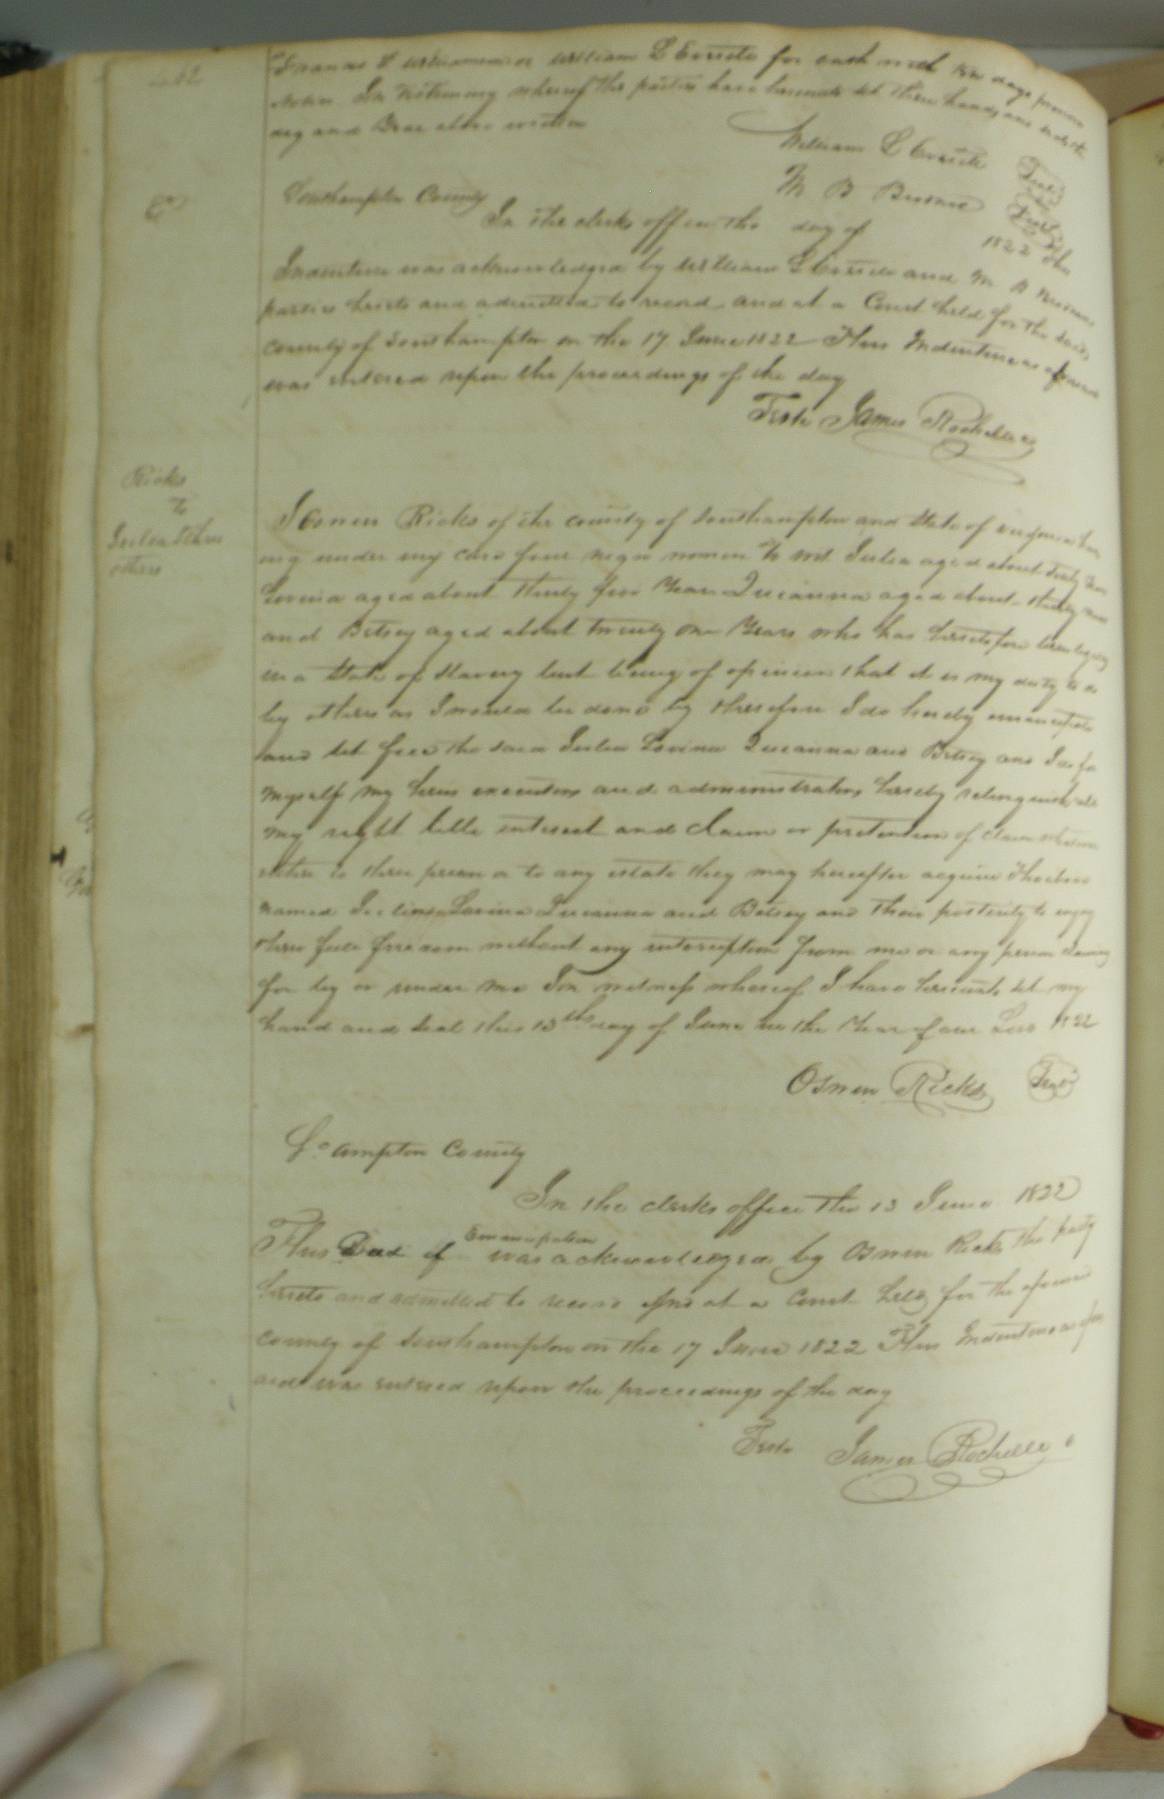 Francis T Williamson or William L Everitt for cash with ten days previous
notice In testimony whereof the parties have hereunto set their hands and seals the
day and Year above written
William L Everitt Seal
M B Seal
Southampton County
In the clerks office the day of 1822 This
Indenture was acknowledged by William L Everitt and M B
parties hereto and admitted to record and at a Court held for the said
county of Southampton on the 17 June 1822 This Indenture as aforesaid
was entered upon the proceedings of the day
Teste James Rochelle
Ricks
to
others
I Oswin Ricks of the county of Southampton and State of virginia hav
ing under my care four negro women to wit Julia aged about
Lovina aged about thirty five Years Queanna aged about thirty
and Betsey aged about twenty one Years who has heretofore been
in a State of Slavery but being of opinion that it is my duty to do
by others as I would be done by therefore I do hereby emancipate
and set free the said Julia Lovina Queanna and Betsey and I do for
myself my heirs executors and administrators hereby relinquish all
my right title interest and claim or pretention of claim
either to their person or to any estate they may hereafter acquire
named Lovina Queanna and Betsey and their posterity to enjoy
their full freedom without any interruption from me or any person claiming
for by or under me In witness whereof I have hereunto set my
hand and seal this 13th day of June in the Year of our Lord 1822
Oswin Ricks Seal
So ampton County
In the clerks office the 13 June 1822
This Deed of Emancipation was acknowledged by Oswin Ricks the party
hereto and admitted to record And at a Court held for the aforesaid
county of Southampton on the 17 June 1822 This Indenture as afore
said was entered upon the proceedings of the day
Teste James Rochelle